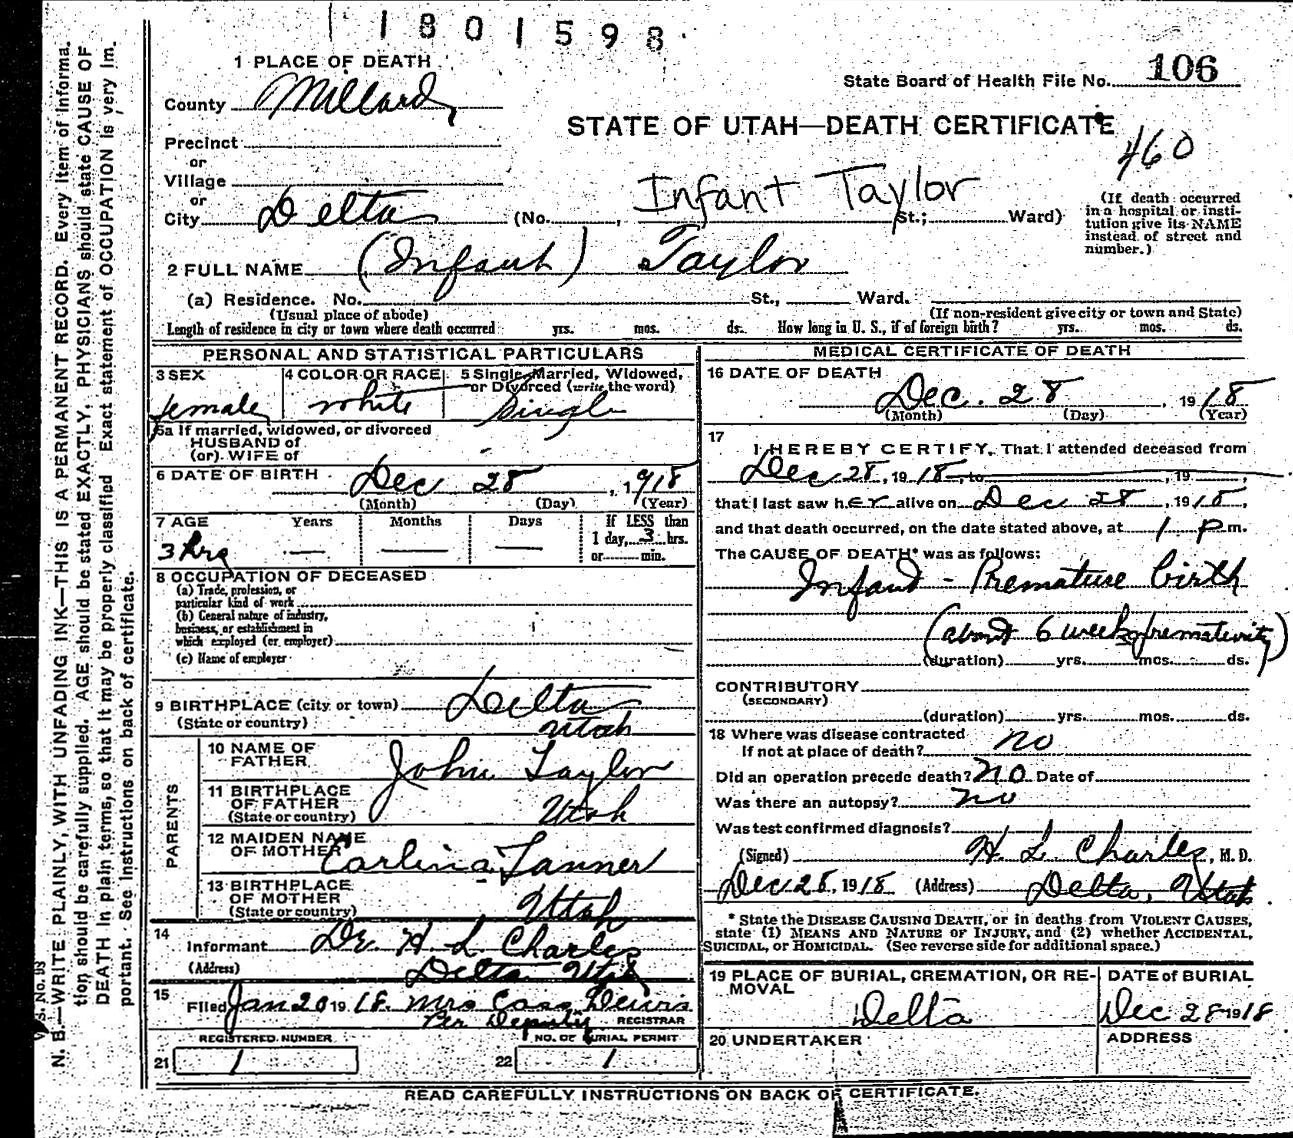 1801598
1 PLACE OF DEATH
State Board of Health File No. 106
County Millard
STATE OF UTAH—DEATH CERTIFICATE
460
Precinct
or
Village
or
City Delta (No. , Infant Taylor St.; Ward)
(If death occurred in a hospital or insti-
tution give its NAME
instead of street and
number.)
2 FULL NAME (Infant) Taylor
(a) Residence. No. St., Ward.
(Usual place of abode) (If non-resident give city or town and State)
Length of residence in city or town where death occurred yrs. mos. ds. How long in U. S., if of foreign birth? yrs. mos. ds.
PERSONAL AND STATISTICAL PARTICULARS
3 SEX 4 COLOR OR RACE 5 Single, Married, Widowed,
or Divorced (write the word)
female white Single
5a If married, widowed, or divorced
HUSBAND of
(or) WIFE of
6 DATE OF BIRTH Dec 28, 1918
(Month) (Day) (Year)
7 AGE Years Months Days If LESS than
3 hrs — — — 1 day, 3 hrs.
or min.
8 OCCUPATION OF DECEASED
(a) Trade, profession, or
particular kind of work
(b) General nature of industry,
business, or establishment in
which employed (or employer)
(c) Name of employer
9 BIRTHPLACE (city or town) Delta
(State or country) Utah
PARENTS
10 NAME OF
FATHER John Taylor
11 BIRTHPLACE
OF FATHER
(State or country) Utah
12 MAIDEN NAME
OF MOTHER Earlina Tanner
13 BIRTHPLACE
OF MOTHER
(State or country) Utah
14
Informant Dr H L Charles
(Address) Delta Utah
15
Filed Jan 20 1918. Mrs Cass
Per Deputy REGISTRAR
REGISTERED NUMBER NO. OF BURIAL PERMIT
21 1 22 1
MEDICAL CERTIFICATE OF DEATH
16 DATE OF DEATH
Dec. 28, 1918
(Month) (Day) (Year)
17
I HEREBY CERTIFY, That I attended deceased from
Dec 28, 1918, to , 19
that I last saw her alive on Dec 28, 1918,
and that death occurred, on the date stated above, at 1 P m.
The CAUSE OF DEATH* was as follows:
Infant - Premature birth
(about 6 weeks prematurity)
(duration) yrs. mos. ds.
CONTRIBUTORY
(SECONDARY)
(duration) yrs. mos. ds.
18 Where was disease contracted
if not at place of death? no
Did an operation precede death? no Date of
Was there an autopsy? no
Was test confirmed diagnosis?
(Signed) H L Charles, M. D.
Dec 28, 1918 (Address) Delta, Utah
* State the DISEASE CAUSING DEATH, or in deaths from VIOLENT CAUSES,
state (1) MEANS AND NATURE OF INJURY, and (2) whether ACCIDENTAL,
SUICIDAL, or HOMICIDAL. (See reverse side for additional space.)
19 PLACE OF BURIAL, CREMATION, OR RE-
MOVAL DATE of BURIAL
Delta Dec 28 1918
20 UNDERTAKER ADDRESS
READ CAREFULLY INSTRUCTIONS ON BACK OF CERTIFICATE.
V. S. No. 93
N. B.—WRITE PLAINLY, WITH UNFADING INK—THIS IS A PERMANENT RECORD. Every item of informa-
tion should be carefully supplied. AGE should be stated EXACTLY. PHYSICIANS should state CAUSE OF
DEATH in plain terms, so that it may be properly classified Exact statement of OCCUPATION is very im-
portant. See instructions on back of certificate.